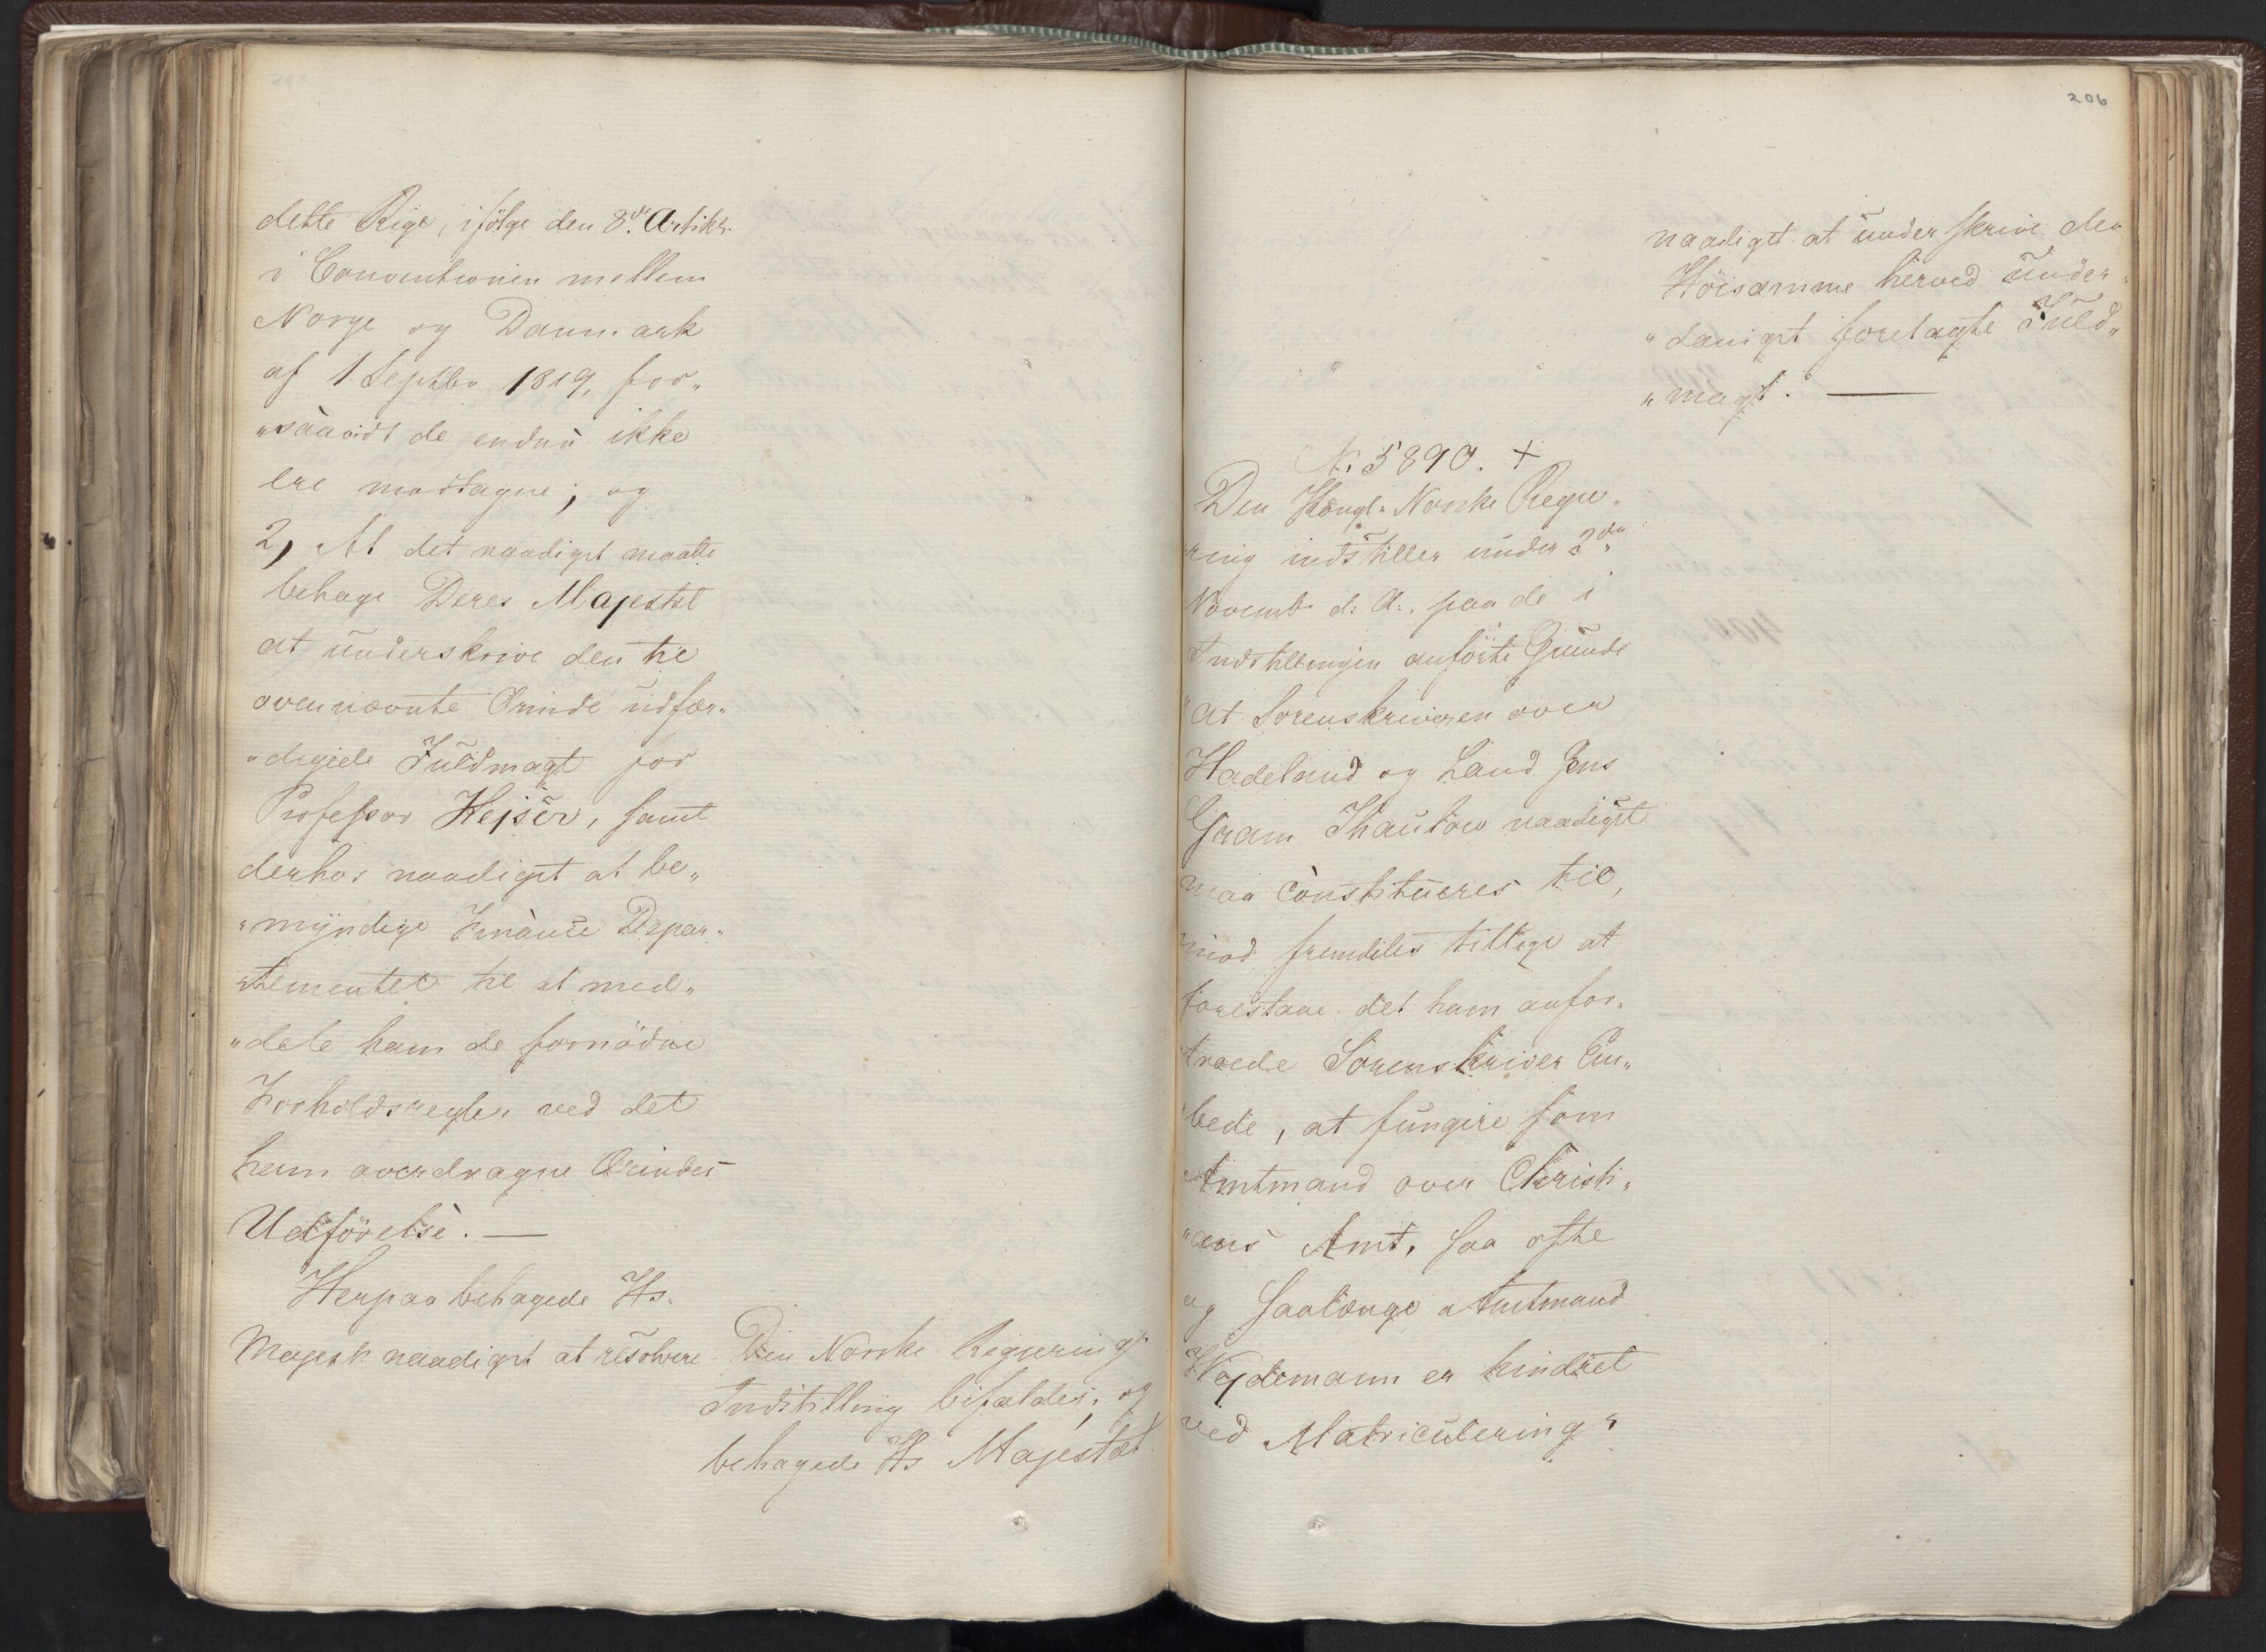 dette Rige, ifölge den 8de Artikl.
i Conventionen mellem
Norge og Danmark
af 1 Septbr 1819, for„
„saavidt de endnu ikke
ere modtagne; og
2, At det naadigst maatte
behage Deres Majestæt
at underskrive den til
ovennævnte Ærinde udfær„
„digede Fuldmagt for
Professor Kejser, samt
derhos naadigst at be„
„myndige Finance Depar„
„tementet til at med„
„dele ham de fornödne
Forholdsregler ved det
ham overdragne Ærindes
Udförelse. —
Herpaa behagede Hs.
Majest. naadigst at resolvere
Den Norske Regjerings
Indstilling bifaldes; og
behagede Hs Majestæt
206
naadigst at underskrive den
Höisamme herved under„
„danigst forelagte Fuld„
„magt. —
N. 5890. +
Den Kongl. Norske Regje„
ring indstiller under 2den
Novemb. d: A:. paa de i
Indstillingen anförte Grunde
"At Sorenskriveren over
Hadeland og Land Jens
Gram Thaulow naadigst
maa constitueres til,
mod fremdeles tillige at
forestaae det ham anfor„
troede Sorenskriver Em„
bede, at fungere som
Amtmand over Christi„
„ans Amt, saa ofte
og saalænge Amtmand
Wejdemann er hindret
ved Matriculerings